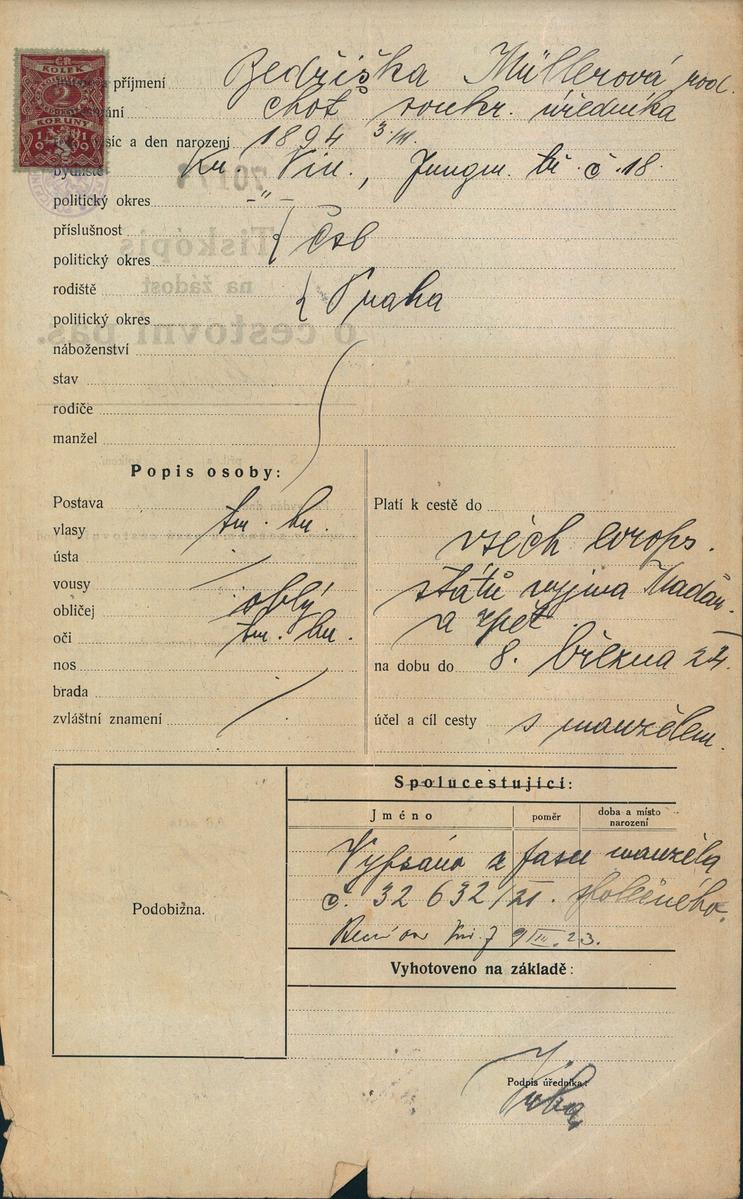 ČR
KOLEK
2
KORUNY
1919
a příjmení Bedřiška Müllerová roz.
choť soukr. úředníka
a den narození 1894 3/III.
bydliště Kr. Vin., Jungm. tř. č. 18.
politický okres -"-
příslušnost čsl
politický okres
rodiště Praha
politický okres
náboženství
stav
rodiče
manžel
Popis osoby:
Postava
vlasy tm. hn.
ústa
vousy
obličej oblý
oči tm. hn.
nos
brada
zvláštní znamení
Platí k cestě do
všech evrops.
států vyjma Maďar.
a zpět
na dobu do 8. března 24.
účel a cíl cesty s manželem.
Spolucestující:
Jméno poměr doba a místo narození
Vypsáno z pasu manžela
č. 32 632/21.
9/III. 23.
Podobizna.
Vyhotoveno na základě:
Podpis úředníka: